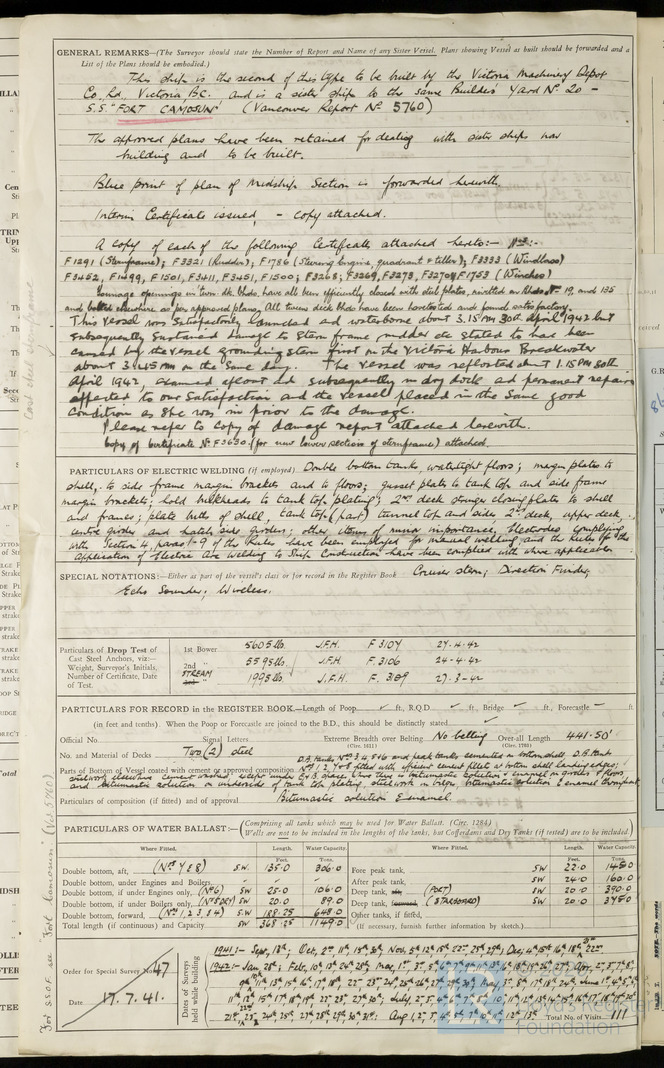 GENERAL REMARKS—(The Surveyor should state the Number of Report and Name of any Sister Vessel. Plans showing Vessel as built should be forwarded and a
List of the Plans should be embodied.)
This ship is the second of this type to be built by the Victoria Machinery Depot
Co., Ltd, Victoria BC. and is a sister ship to the same Builders' Yard No. 20 -
S.S. "FORT CAMOSUN" (Vancouver Report No 5760)
The approved plans have been retained for dealing with sister ships now
building and to be built.
Blue print of plan of Midship Section is forwarded herewith.
Interim Certificate issued, - copy attached.
A copy of each of the following Certificates attached hereto:- Nos:-
F1291 (Sternframe); F3321 (Rudder); F1786 (Steering Engine, quadrant & tiller); F3333 (Windlass)
F3452, F1499, F1501, F3411, F3451, F1500; F3268, F3269, F3273, F3270 & F1753 (Winches)
Tonnage openings in 'twn dk. bhds have all been efficiently closed with steel plates, rivetted on Bhds Nos. 19, and 135
and bolted elsewhere as per approved plans. All tween deck bhds have been hosetested and found satisfactory.
This vessel was satisfactorily launched and waterborne about 3.15 PM 30th April 1942 but
subsequently sustained damage to stern frame rudder etc stated to have been
caused by the vessel grounding stern first on the Victoria Harbour Breakwater
about 3.45 PM on the same day. The vessel was refloated about 1.15 PM 30th
April 1942, examined afloat and subsequently in dry dock and permanent repairs
effected to our satisfaction and the vessel placed in the same good
condition as she was in prior to the damage.
Please refer to copy of damage report attached herewith.
Copy of Certificate No F3650 (for new lower section of sternframe) attached.
PARTICULARS OF ELECTRIC WELDING (if employed). Double bottom tanks, watertight floors; margin plates to
shell, to side frame margin brackets and to floors; gusset plates to tank top and side frame
margin brackets; hold bulkheads to tank top plating; 2nd deck stringer closing plates to shell
and frames; plate butts of shell, tank top (part) tunnel top and sides 2nd deck, upper deck,
centre girder and hatch side girders; other items of minor importance. Electrodes complying
with Section 4, paras 1-9 of the Rules have been employed for manual welding, and the Rules for the
Application of Electric Arc Welding to Ship Construction have been complied with where applicable
SPECIAL NOTATIONS:—Either as part of the vessel's class or for record in the Register Book Cruiser stern; Direction Finder,
Echo Sounder; Wireless.
Particulars of Drop Test of
Cast Steel Anchors, viz:—
Weight, Surveyor's Initials,
Number of Certificate, Date
of Test.
1st Bower 5605 lbs. J.F.H. F 3107 27-4-42
2nd " 5595 lbs. J.F.H. F. 3106 24-4-42
STREAM 1995 lbs. J.F.H. F. 3189 27-3-42
PARTICULARS FOR RECORD in the REGISTER BOOK.—Length of Poop ft., R.Q.D. ft., Bridge ft., Forecastle ft.
(in feet and tenths). When the Poop or Forecastle are joined to the B.D., this should be distinctly stated
Official No. Signal Letters Extreme Breadth over Belting No belting Over-all Length 441.50'
(Circ. 1611) (Circ. 1703)
No. and Material of Decks Two (2) steel
Parts of Bottom of Vessel coated with cement or approved composition
Particulars of composition (if fitted) and of approval Bitumastic solution & enamel.
PARTICULARS OF WATER BALLAST:—(Comprising all tanks which may be used for Water Ballast. (Circ. 1284)
Wells are not to be included in the lengths of the tanks, but Cofferdams and Dry Tanks (if tested) are to be included.)
Where Fitted. Length. Water Capacity. Where Fitted. Length. Water Capacity.
Feet. Tons. Feet. Tons.
Double bottom, aft, (Nos 7 & 8) SW 135.0 306.0 Fore peak tank, SW 22.0
Double bottom, under Engines and Boilers, After peak tank, SW 24.0 160.0
Double bottom, if under Engines only, (No 6) SW 25.0 106.0 Deep tank, (PORT) SW 20.0 390.0
Double bottom, if under Boilers only, SW 20.0 89.0 Deep tank, (STARBOARD) SW 20.0
Double bottom, forward, (Nos 1, 2, 3, & 4) SW 188.25 648.0 Other tanks, if fitted,
Total length (if continuous) and Capacity 368.25 1149.0 (If necessary, furnish further information by sketch.)
Order for Special Survey No. 47
Date 17.7.41.
Dates of Surveys
held while building
1941:- Sept, 18th; Oct, 2nd
1942:- Jan, 28th; Feb,
Total No. of Visits 111
Lloyd's Register
Foundation